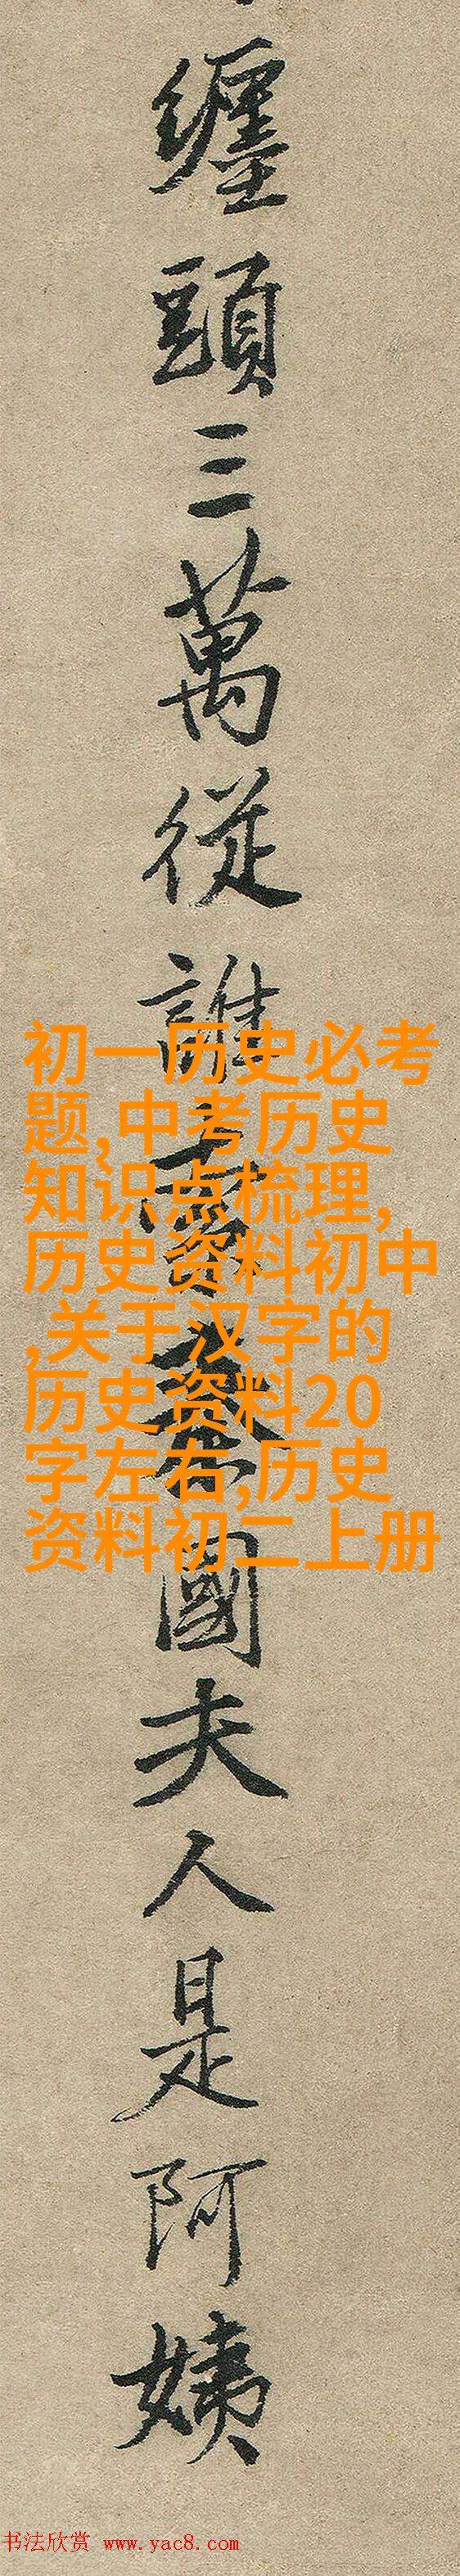 纏頭三萬從誰索秦國夫人是阿姨
初一历史必考
题,中考历史
知识点梳理,
历史资料初中
,关于汉字的
历史资料20
字左右,历史
资料初二上册
书法欣赏 www.yac8.com